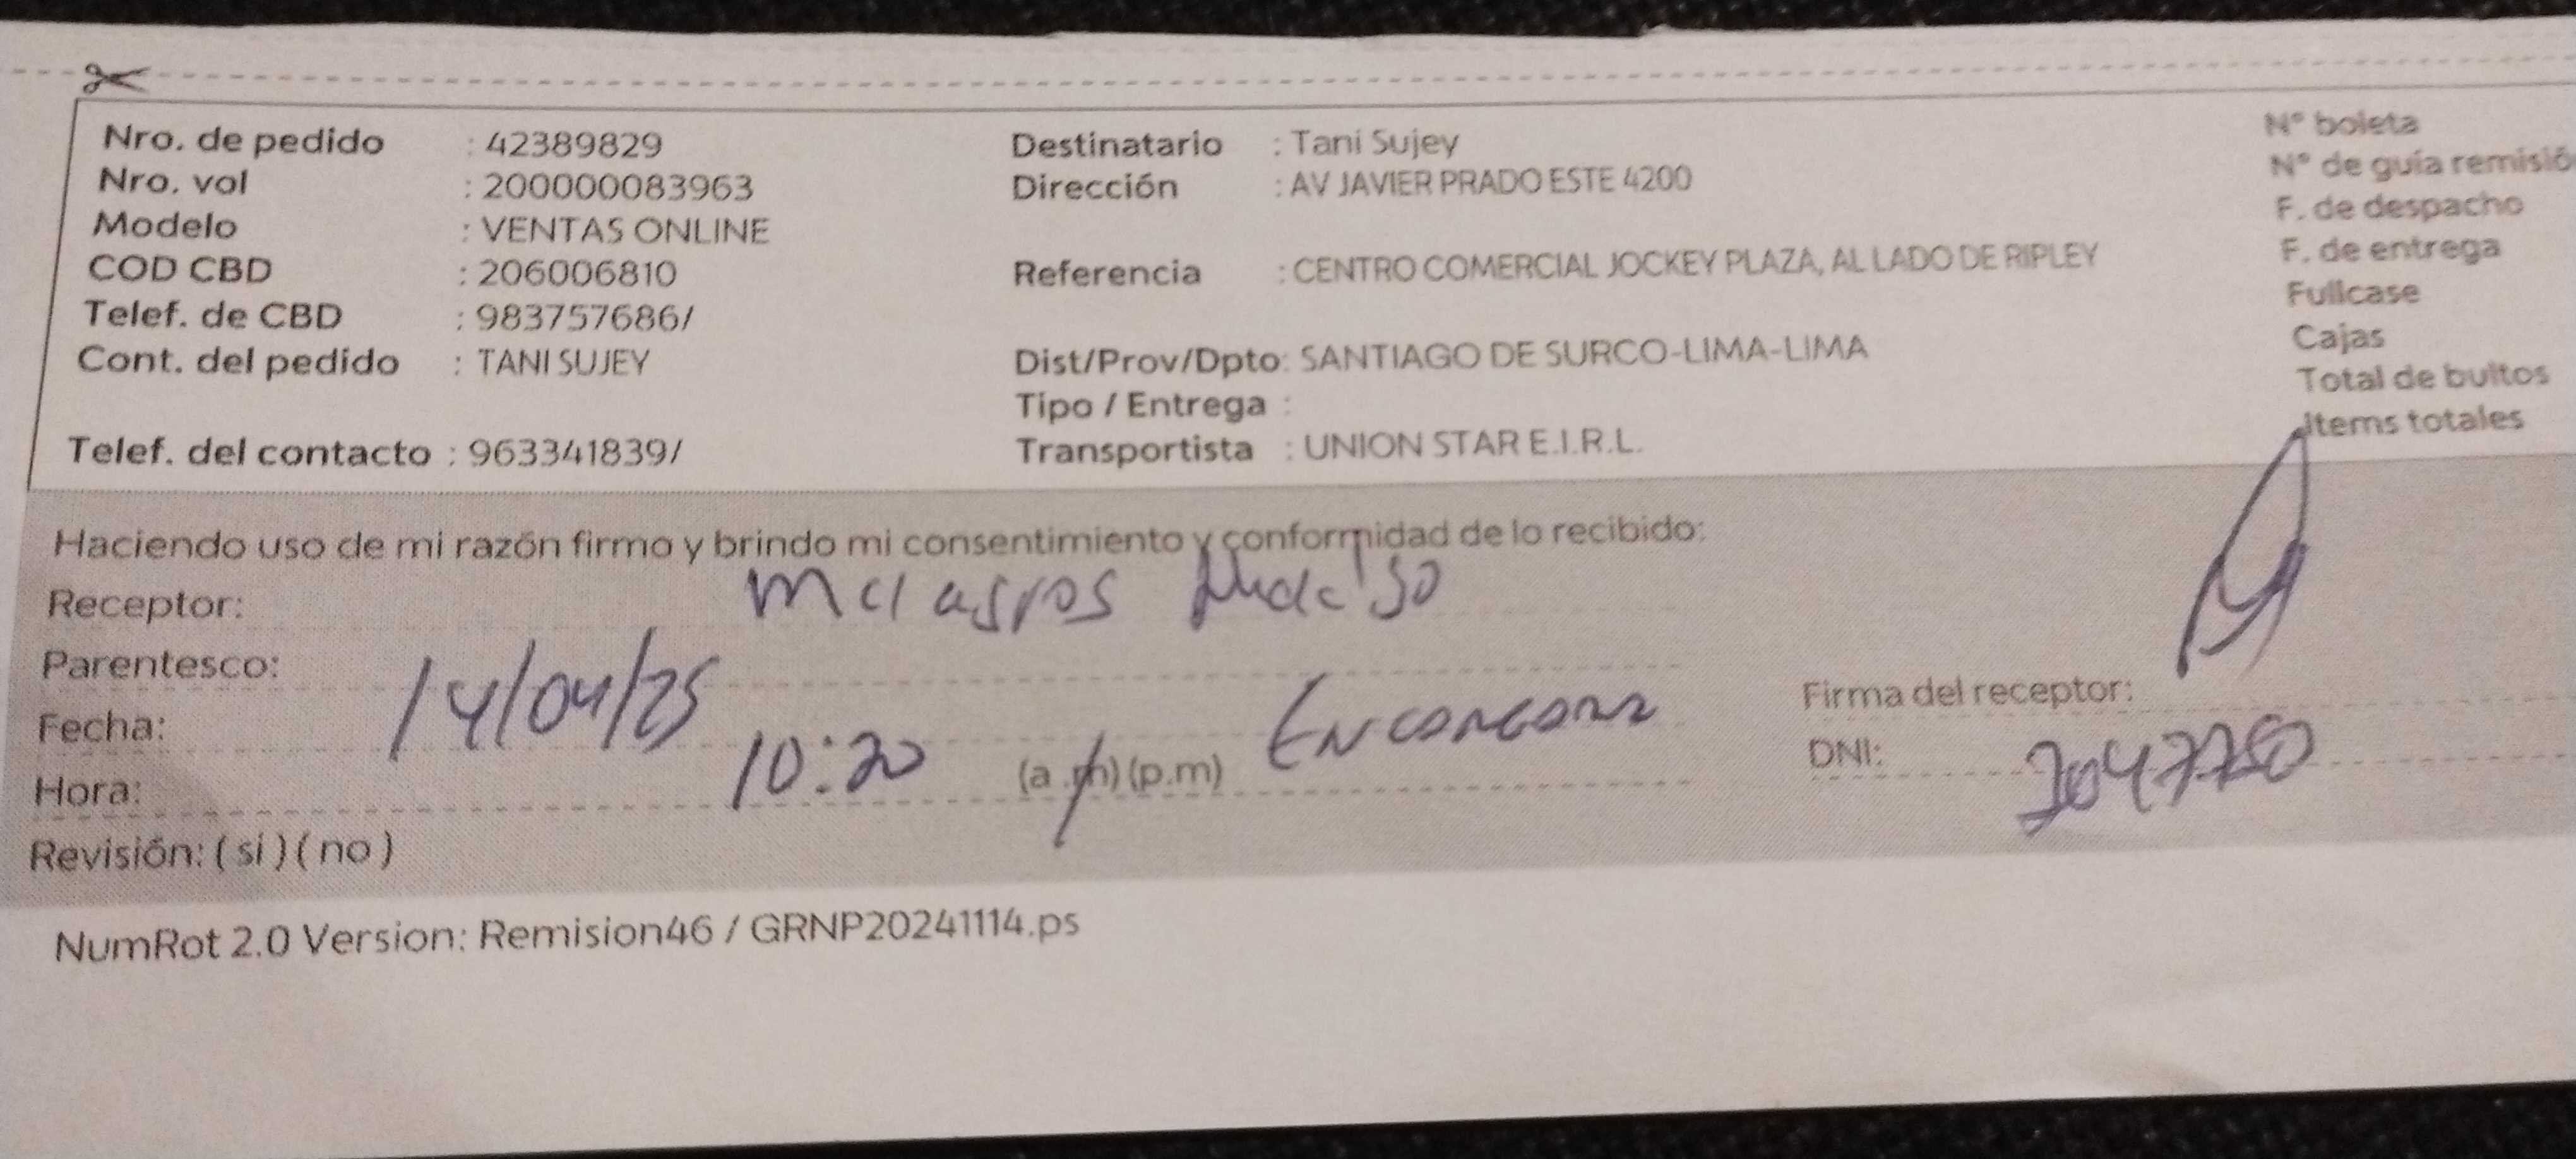 Nro. de pedido : 42389829
Nro. vol : 200000083963
Modelo : VENTAS ONLINE
COD CBD : 206006810
Telef. de CBD : 983757686/
Cont. del pedido : TANI SUJEY
Telef. del contacto : 963341839/
Destinatario : Tani Sujey
Dirección : AV JAVIER PRADO ESTE 4200
Referencia : CENTRO COMERCIAL JOCKEY PLAZA, AL LADO DE RIPLEY
Dist/Prov/Dpto: SANTIAGO DE SURCO-LIMA-LIMA
Tipo / Entrega :
Transportista : UNION STAR E.I.R.L.
N° boleta
N° de guía remisió
F. de despacho
F. de entrega
Fullcase
Cajas
Total de bultos
Items totales
Haciendo uso de mi razón firmo y brindo mi consentimiento y conformidad de lo recibido:
Receptor:
Parentesco:
Fecha: 14/04/25
Hora: 10:20 (a.m) (p.m)
Revisión: ( si ) ( no )
Firma del receptor:
DNI:
NumRot 2.0 Version: Remision46 / GRNP20241114.ps